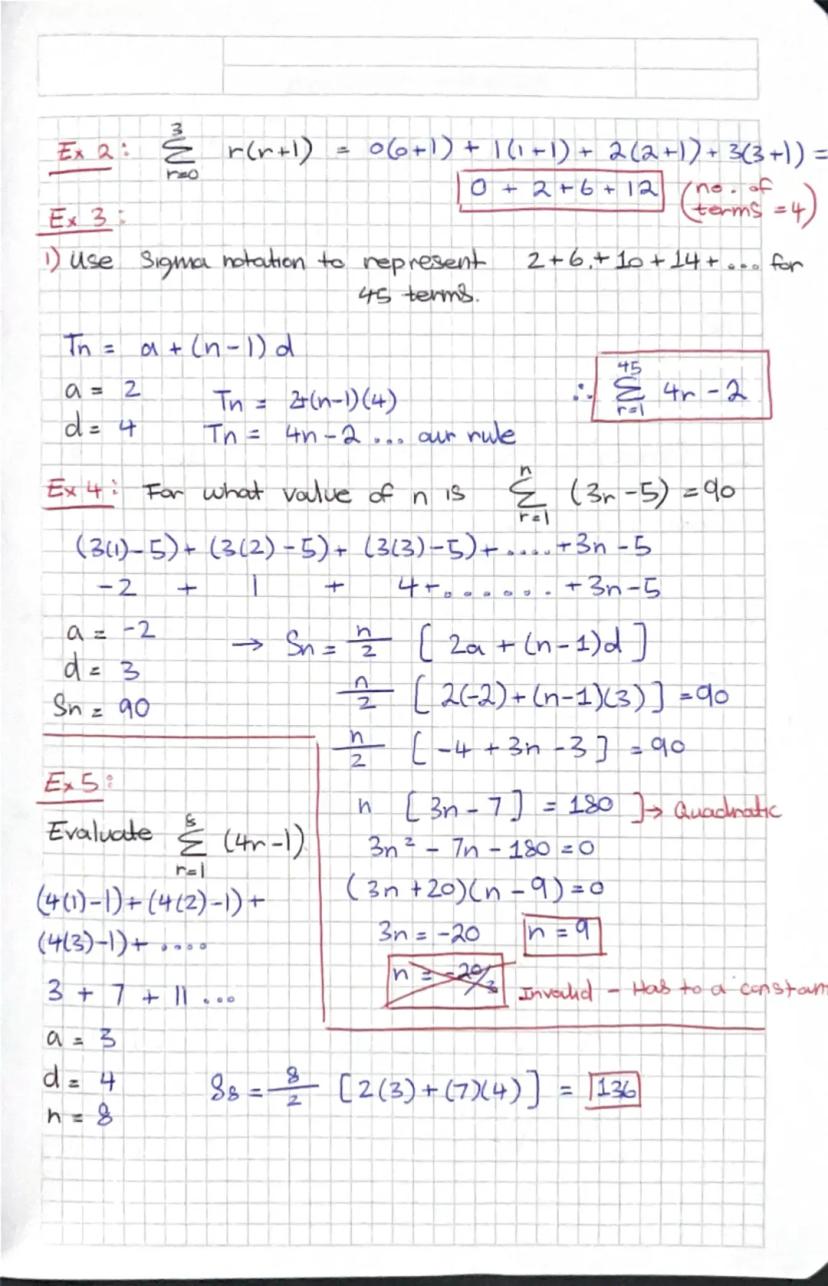 Ex 2: 3 Σ r=0 r(r+1) = 0(0+1) + 1(1+1) + 2(2+1) + 3(3+1) =
0 + 2 + 6 + 12 (no. of terms = 4)
Ex 3:
1) Use Sigma notation to represent 2 + 6 + 10 + 14 + ... for
45 terms.
Tn = a + (n-1) d
a = 2
Tn = 2+(n-1)(4)
d = 4
Tn = 4n-2 ... our rule
∴ 45 Σ r=1 4r - 2
Ex 4: For what value of n is n Σ r=1 (3r-5) = 90
(3(1)-5) + (3(2)-5) + (3(3)-5) + .... + 3n - 5
-2 + 1 + 4 + ....... + 3n-5
a = -2
d = 3
Sn = 90
→ Sn = n/2 [ 2a + (n-1)d ]
n/2 [ 2(-2) + (n-1)(3) ] = 90
n/2 [ -4 + 3n - 3 ] = 90
n [ 3n - 7 ] = 180 ]→ Quadratic
3n² - 7n - 180 = 0
(3n + 20)(n - 9) = 0
3n = -20 n = 9
n = -20/3 Invalid - Has to a constan
Ex 5:
Evaluate 8 Σ r=1 (4r-1)
(4(1)-1) + (4(2)-1) +
(4(3)-1) + ....
3 + 7 + 11 ...
a = 3
d = 4
n = 8
S8 = 8/2 [2(3) + (7)(4)] = 136